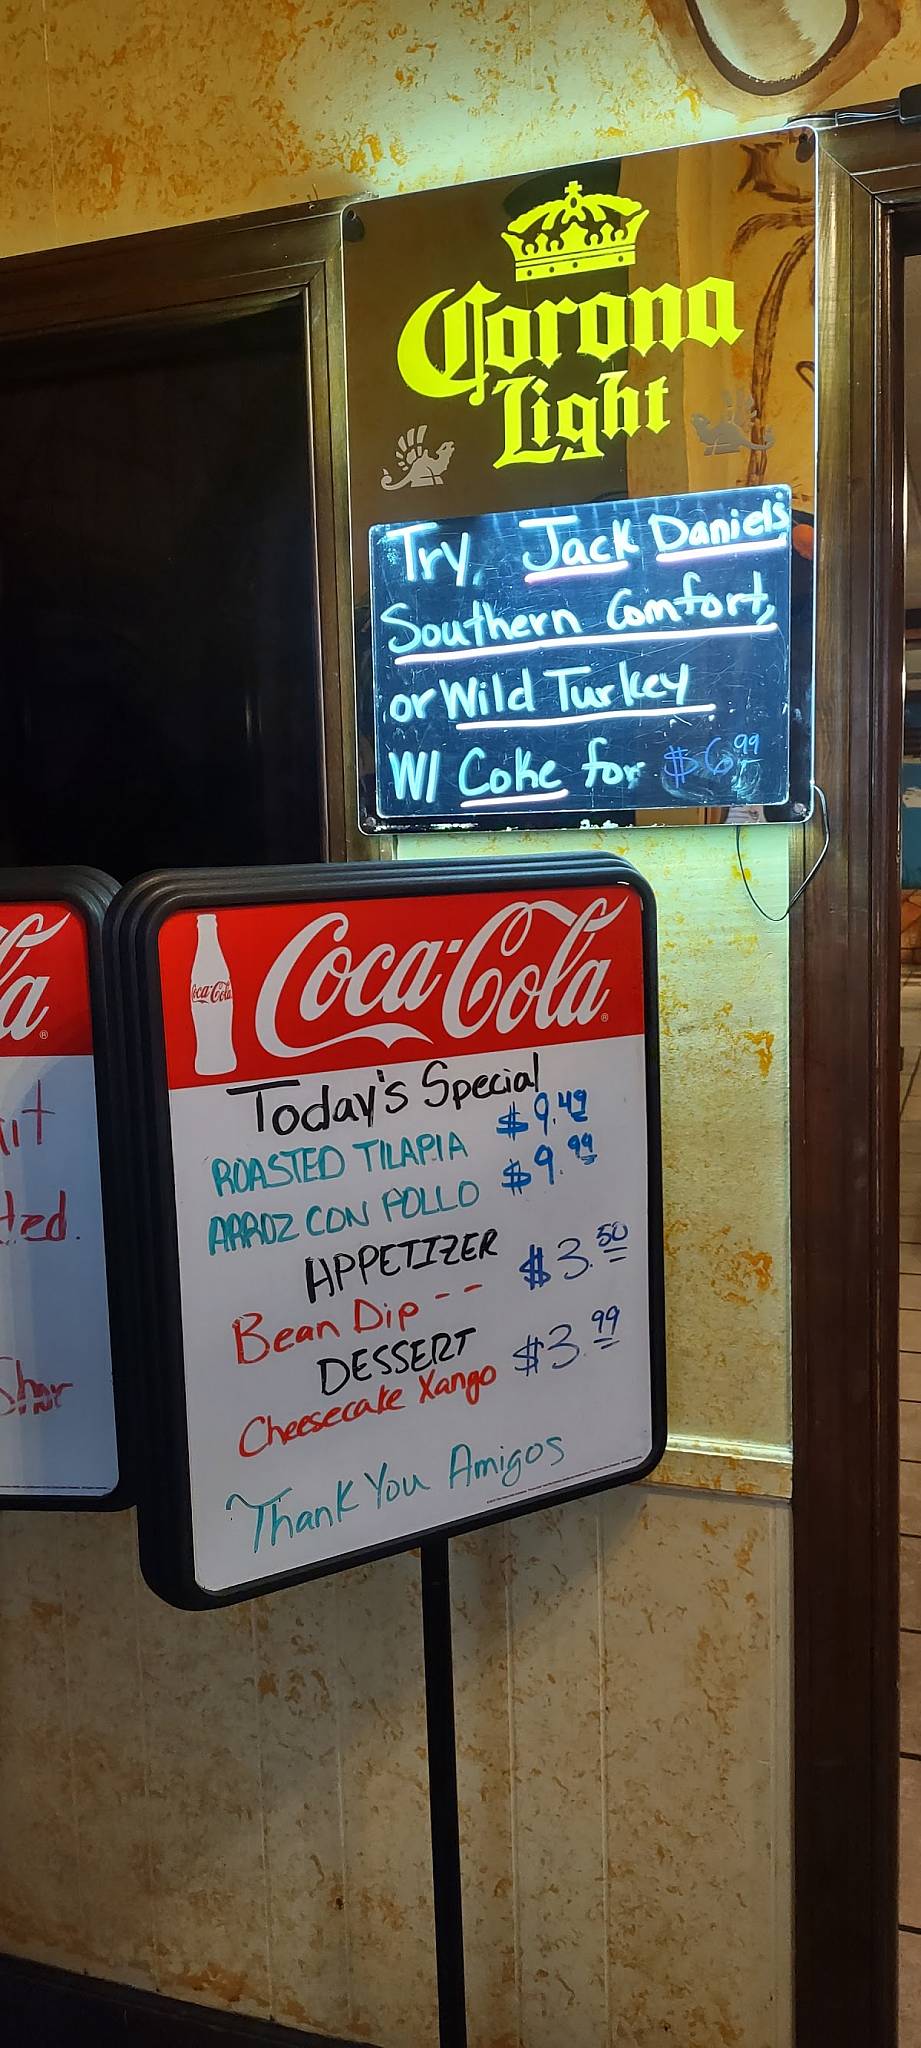 Corona
Light
Try, Jack Daniel's
Southern Comfort,
or Wild Turkey
W/ Coke for $6.99
Coca-Cola
Coca-Cola
Today's Special
ROASTED TILAPIA $9.49
ARROZ CON POLLO $9.99
APPETIZER
Bean Dip -- $3.50
DESSERT
Cheesecake Xango $3.99
Thank You Amigos
la